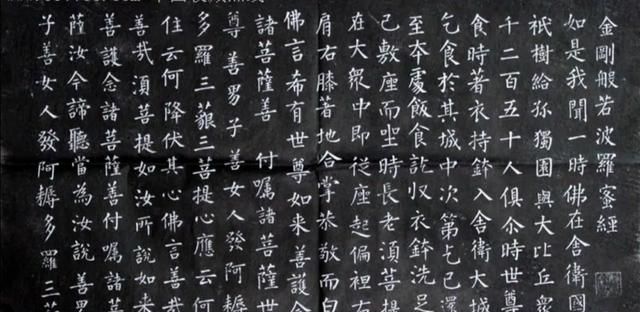 金剛般若波羅蜜經
如是我聞一時佛在舍衛國
祇樹給孤獨園與大比丘眾
千二百五十人俱尒時世尊
食時著衣持鉢入舍衛大城
乞食於其城中次第乞已還
至本處飯食訖収衣鉢洗足
已敷座而坐時長老須菩提
在大眾中即從座起偏袒右
肩右膝著地合掌恭敬而白
佛言希有世尊如来善護念
諸菩薩善 付囑諸菩薩世
尊 善男子 善女人發阿耨
多羅三藐三菩提心應云何
住云何降伏其心佛言善哉
善哉須菩提如汝所說如来
善護念諸菩薩善付囑諸菩
薩汝今諦聽當為汝說善男
子善女人發阿耨多羅三藐